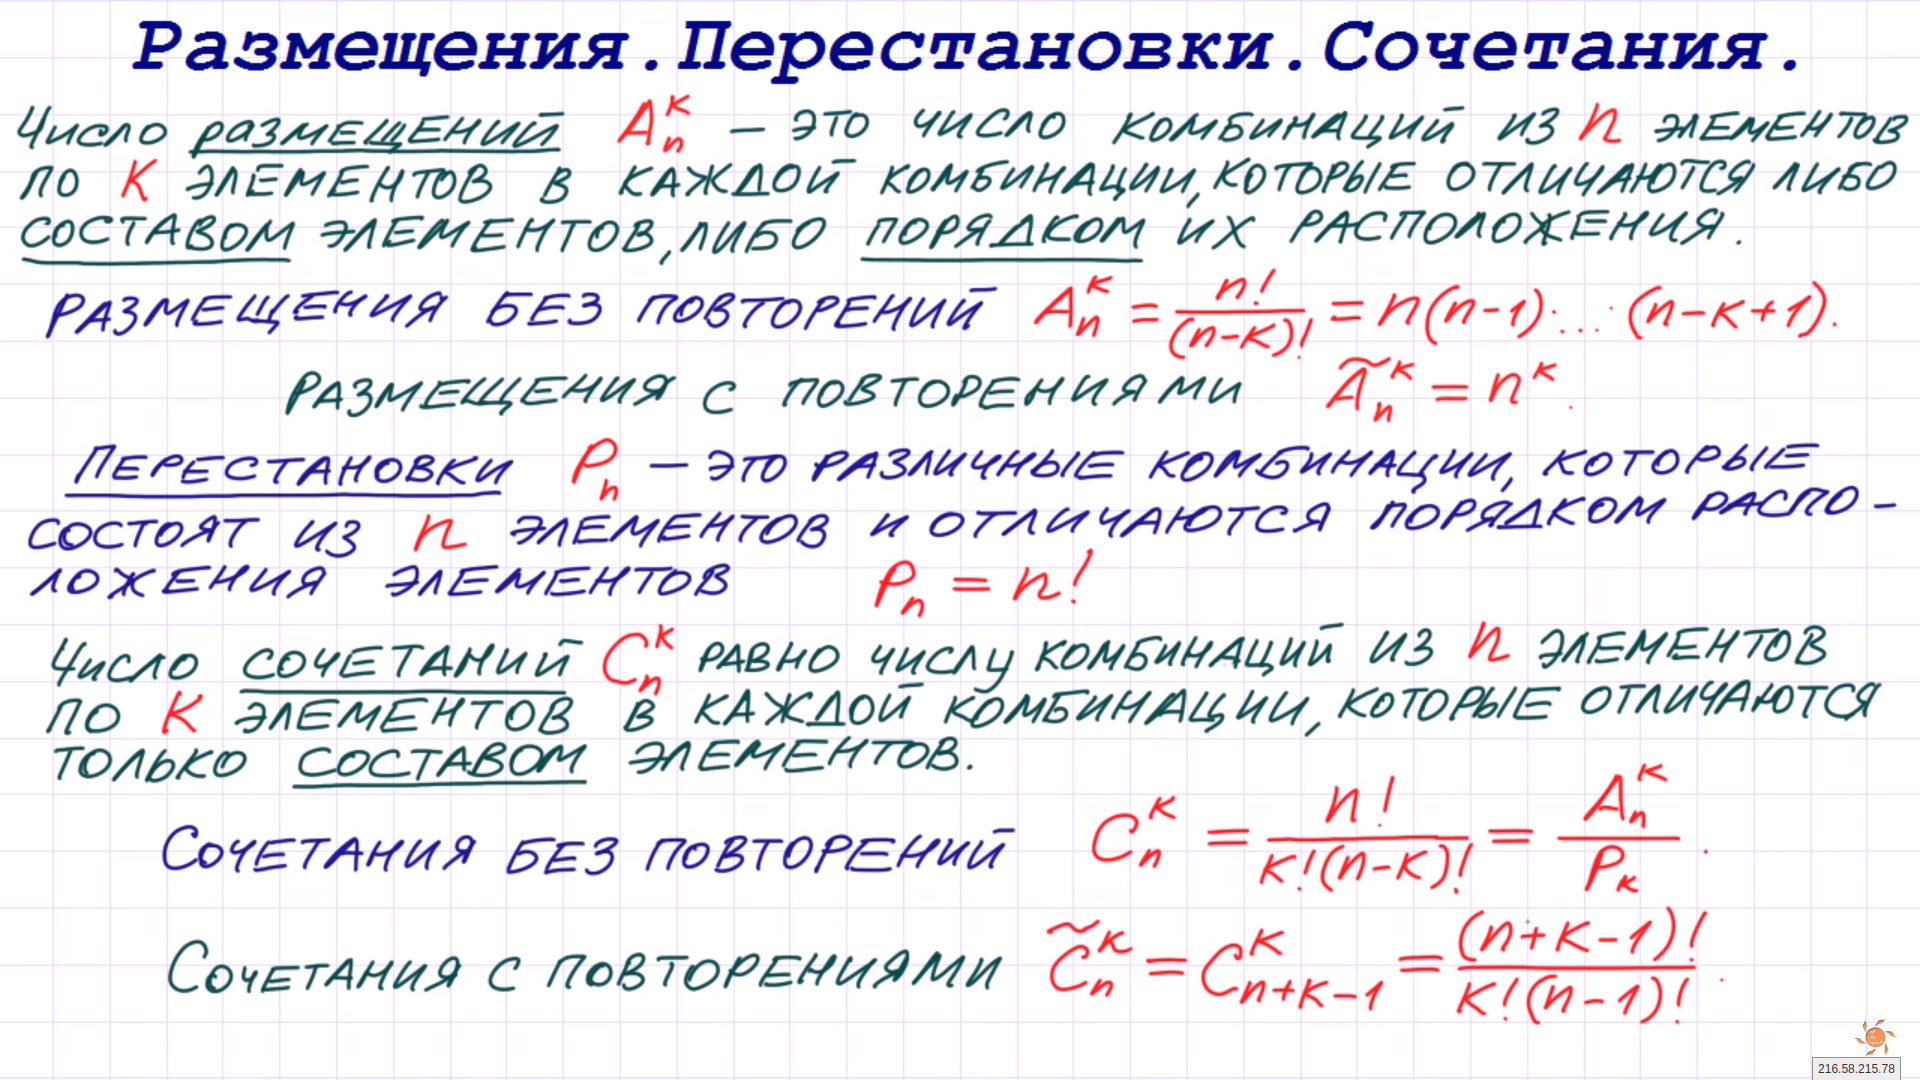 Размещения. Перестановки. Сочетания.
Число размещений Aₙᵏ – это число комбинаций из n элементов
по K элементов в каждой комбинации, которые отличаются либо
составом элементов, либо порядком их расположения.
Размещения без повторений Aₙᵏ = n!/(n-k)! = n(n-1)·...·(n-k+1).
Размещения с повторениями Ãₙᵏ = nᵏ.
Перестановки Pₙ – это различные комбинации, которые
состоят из n элементов и отличаются порядком распо-
ложения элементов Pₙ = n!
Число сочетаний Cₙᵏ равно числу комбинаций из n элементов
по K элементов в каждой комбинации, которые отличаются
только составом элементов.
Сочетания без повторений Cₙᵏ = n!/(k!(n-k)!) = Aₙᵏ/Pₖ.
Сочетания с повторениями C̃ₙᵏ = Cᵏₙ₊ₖ₋₁ = (n+k-1)!/(k!(n-1)!).
216.58.215.78